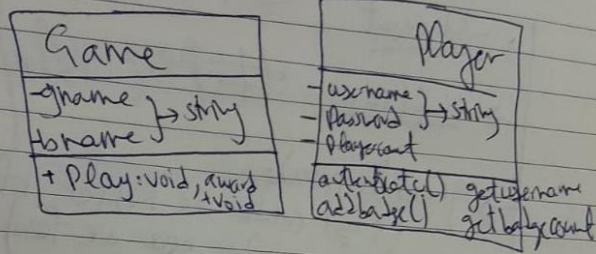 Game
-gname } → string
-bname
+ Play: void, award
+void
Player
- username } → string
- Password
- Playercount
authenticate() getusername
addbadge() getbadgecount